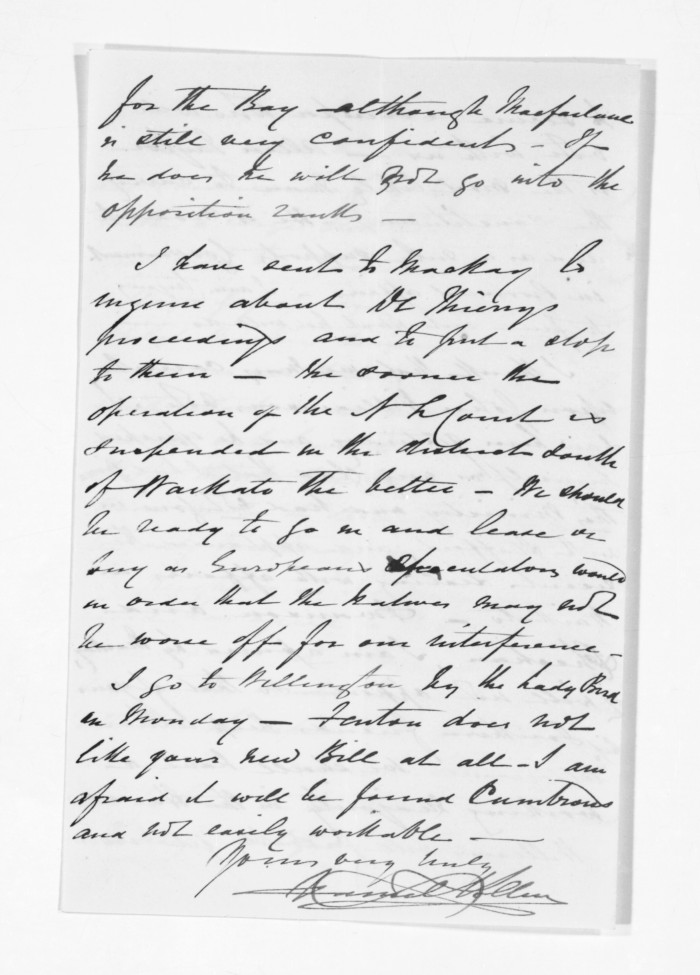 for the Bay - although Macfarlane
is still very confident - If
he does he will not go into the
opposition ranks -
I have sent to Mackay to
inquire about De Thierrys
proceedings and to put a stop
to them - the sooner the
operation of the N L Court is
suspended in the district South
of Waikato the better - We should
be ready to go in and lease or
buy as European speculators would
in order that the natives may not
be worse off for our interference -
I go to Wellington by the Lady Bird
on Monday - Fenton does not
like your new Bill at all - I am
afraid it will be found Cumbrous
and not easily workable -
Yours very truly
Daniel Pollen